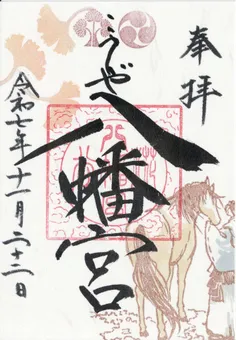 奉拝
八幡宮
令和七年十一月二十二日